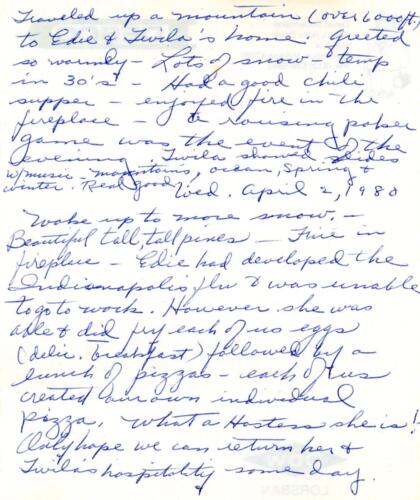 Traveled up a mountain (over 6000 ft.)
to Edie & Twila's home greeted
so warmly - Lots of snow - temp
in 30's - Had a good chili
supper - enjoyed fire in the
fireplace - & rousing poker
game was the event of the
evening - Twila showed slides
w/music - mountains, ocean, Spring &
winter. Real good Wed. April 2, 1980
Woke up to more snow. -
Beautiful tall, tall pines - Fire in
fireplace - Edie had developed the
Indianapolis flu & was unable
to go to work. However she was
able & did fry each of us eggs
(delic. breakfast) followed by a
lunch of pizzas - each of us
created our own individual
pizza. What a Hostess she is!
Only hope we can return her &
Twilas hospitality some day.
LORSBAN